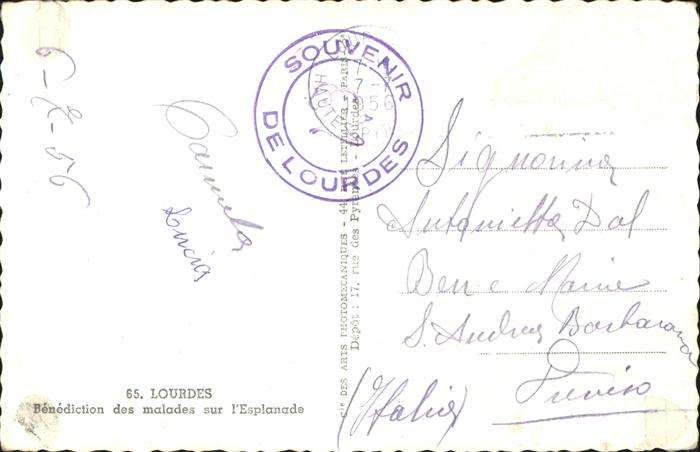 6-7-56
Carmela
Lucia
65. LOURDES
Bénédiction des malades sur l'Esplanade
SOUVENIR
DE LOURDES
Cie DES ARTS PHOTOMÉCANIQUES - 44, LETELLIER - PARIS
Dépôt : 17, rue des Pyrénées - Lourdes
Signorina
Antonietta Dal
Ben e Maria
S. Andrea Barbarana
(Italia) Treviso